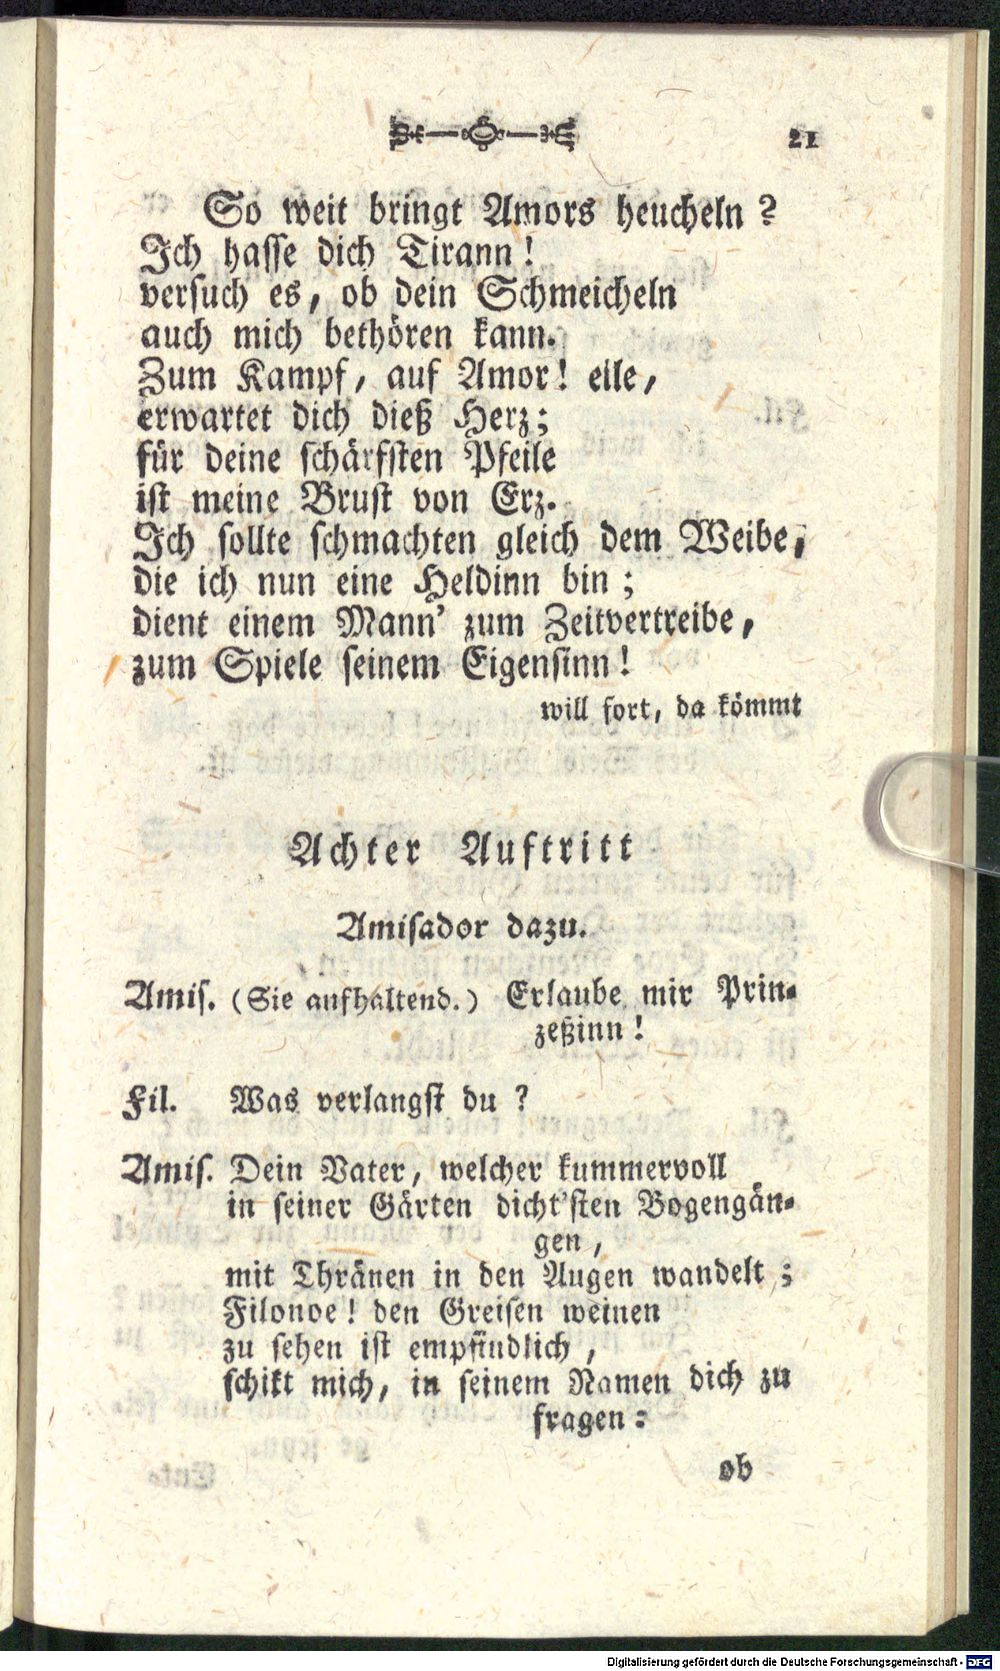 21
So weit bringt Amors heucheln?
Ich hasse dich Tirann!
versuch es, ob dein Schmeicheln
auch mich bethören kann.
Zum Kampf, auf Amor! eile,
erwartet dich dieß Herz;
für deine schärfsten Pfeile
ist meine Brust von Erz.
Ich sollte schmachten gleich dem Weibe,
die ich nun eine Heldinn bin;
dient einem Mann' zum Zeitvertreibe,
zum Spiele seinem Eigensinn!
will fort, da kömmt
Achter Auftritt
Amisador dazu.
Amis. (Sie aufhaltend.) Erlaube mir Prin-
zeßinn!
Fil. Was verlangst du?
Amis. Dein Vater, welcher kummervoll
in seiner Gärten dicht'sten Bogengän-
gen,
mit Thränen in den Augen wandelt;
Filonoe! den Greisen weinen
zu sehen ist empfindlich,
schikt mich, in seinem Namen dich zu
fragen:
ob
Digitalisierung gefördert durch die Deutsche Forschungsgemeinschaft - DFG